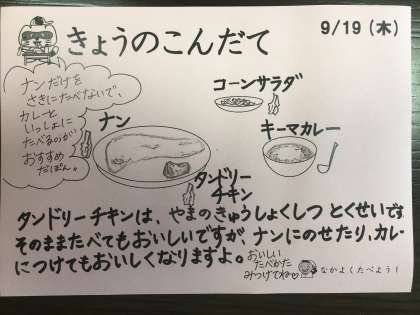 きょうのこんだて
9/19（木）
ナンだけを
さきにたべないで、
カレーと
いっしょに
たべるのが
おすすめ
だぽん。
コーンサラダ
ナン
キーマカレー
タンドリー
チキン
タンドリーチキンは、やまのきゅうしょくしつ とくせいです
そのままたべてもおいしいですが、ナンにのせたり、カレー
につけてもおいしくなりますよ。
おいしい
たべかた
みつけてね♡
なかよくたべよう！